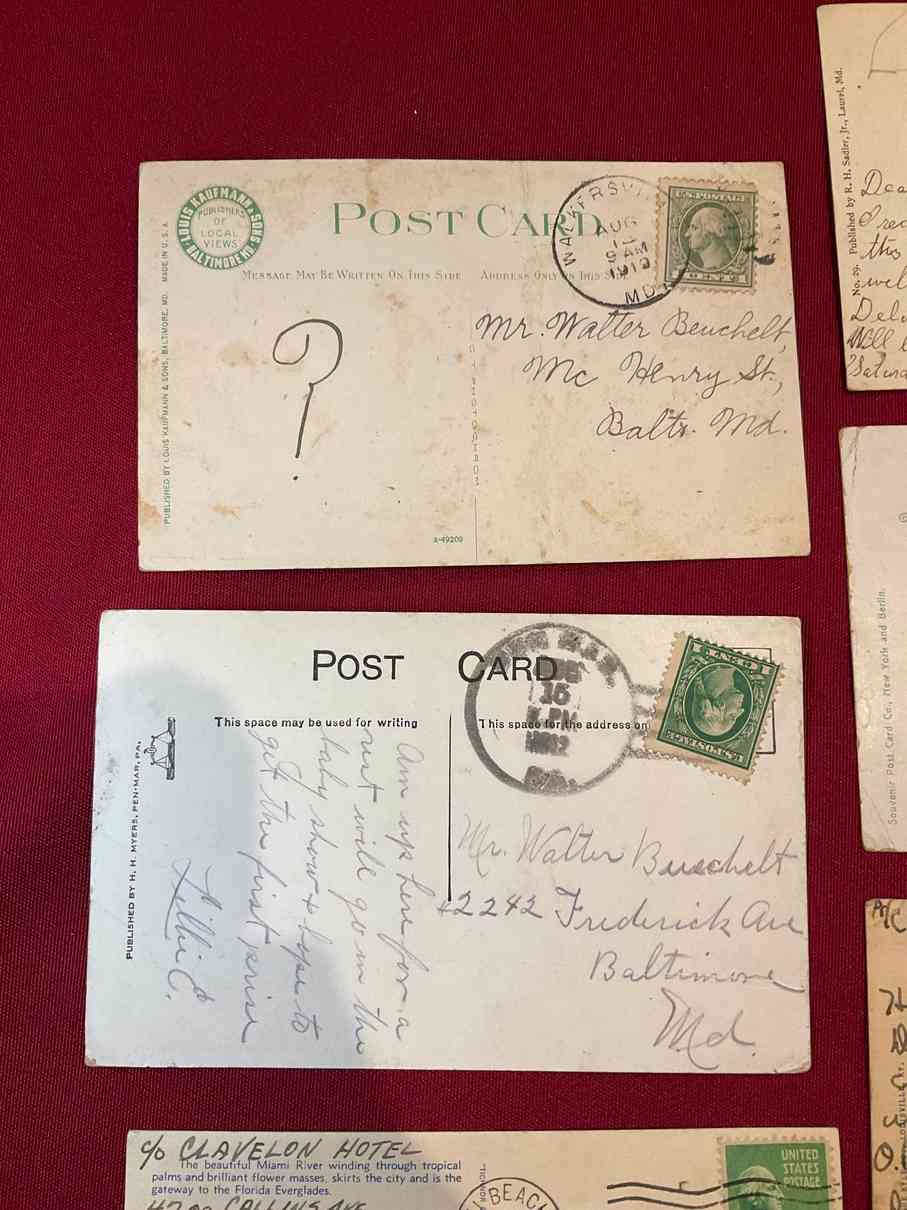 LOUIS KAUFMANN & SONS
BALTIMORE MD.
PUBLISHERS
OF
LOCAL
VIEWS
POST CARD
MESSAGE MAY BE WRITTEN ON THIS SIDE
ADDRESS ONLY ON THIS SIDE
PUBLISHED BY LOUIS KAUFMANN & SONS, BALTIMORE, MD. MADE IN U.S.A.
AUG
9 AM
MD.
U.S. POSTAGE
?
Mr. Walter Beuchelt,
Mc Henry St.,
Balto. Md.
A-49209
POST CARD
This space may be used for writing
This space for the address on
15
1 CENT 1
U.S. POSTAGE
PUBLISHED BY H. H. MYERS, PEN-MAR, PA.
Am up here for a
rest will go in the
baby show & hope to
get the first
Lillie C.
Mr. Walter Bueschelt
2242 Frederick Ave
Baltimore
Md.
c/o CLAVELON HOTEL
The beautiful Miami River winding through tropical
palms and brilliant flower masses, skirts the city and is the
gateway to the Florida Everglades.
COLLINS AVE
BEACH
UNITED
STATES
POSTAGE
No. 29. Published by R. H. Sadler, Jr., Laurel, Md.
Dea
this
wel
Will
Satur
Souvenir Post Card Co., New York and Berlin.